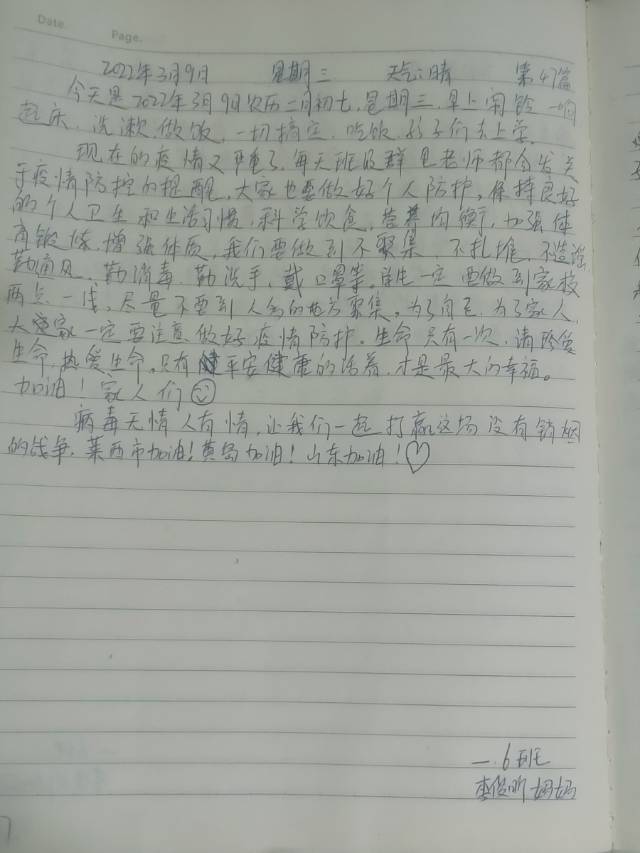 Date.
Page.
2022年3月9日 星期三 天气:晴 第47篇
今天是2022年3月9日农历二月初七,星期三,早上闹铃一响
起床,洗漱做饭,一切搞定,吃饭,孩子们去上学。
现在的疫情又严重了,每天班级群里老师都会发关
于疫情防控的提醒,大家也要做好个人防护,保持良好
的个人卫生和生活习惯,科学饮食,营养均衡,加强体
育锻炼增强体质,我们要做到不聚集 不扎堆,不造谣
勤通风,勤消毒,勤洗手,戴口罩等,学生一定要做到家校
两点一线,尽量不要到人多的地方聚集,为了自己,为了家人,
大家一定要注意做好疫情防护,生命只有一次,请珍爱
生命,热爱生命,只有平安健康的活着,才是最大的幸福。
加油!家人们
病毒无情人有情,让我们一起打赢这场没有硝烟
的战争,莱西市加油!黄岛加油!山东加油!
一.6班
李俊昕妈妈